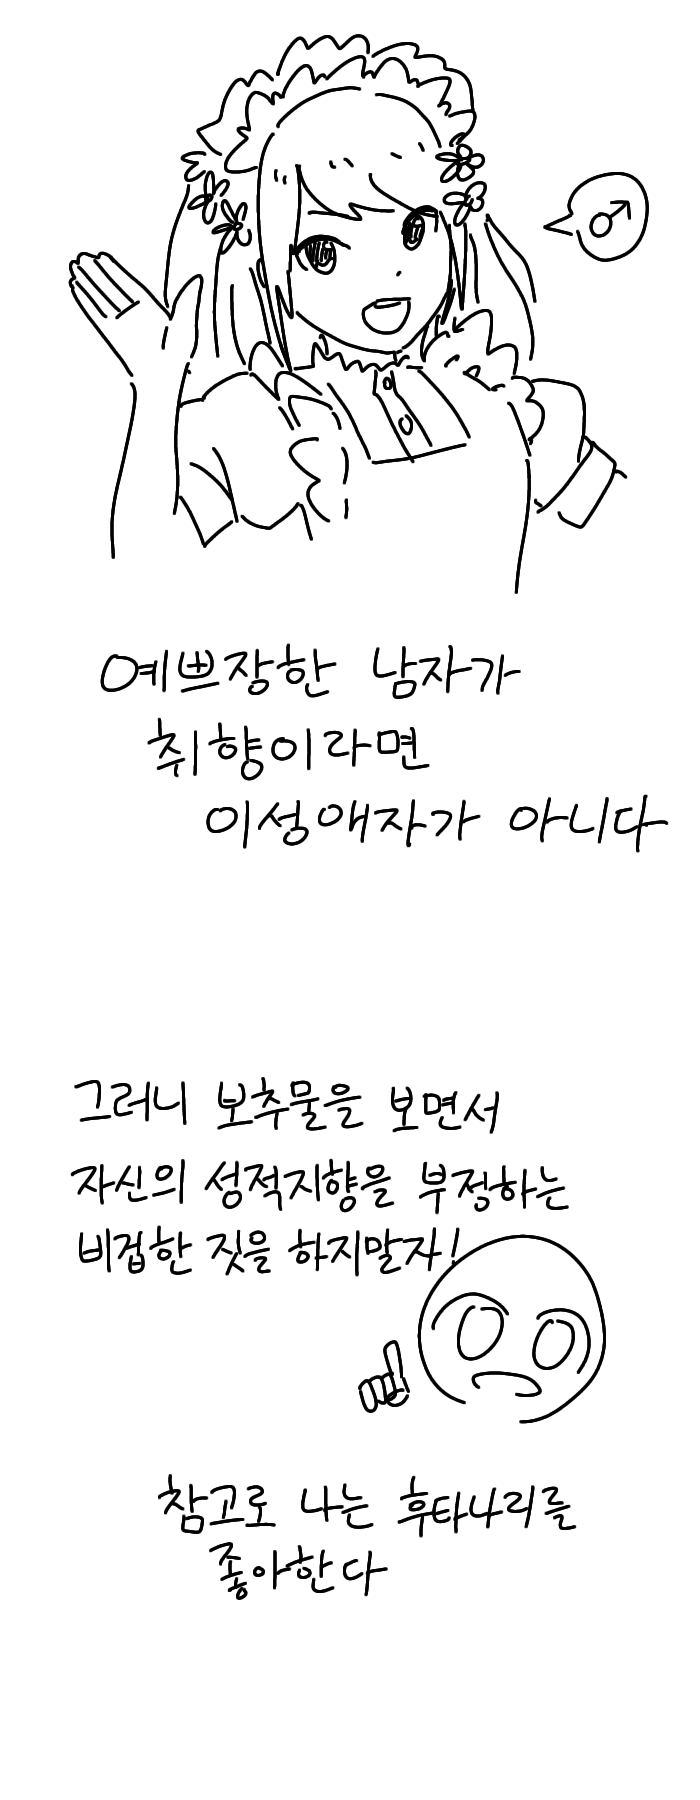 예쁘장한 남자가
취향이라면
이성애자가 아니다
그러니 보추물을 보면서
자신의 성적지향을 부정하는
비겁한 짓을 하지말자!
참고로 나는 후타나리를
좋아한다